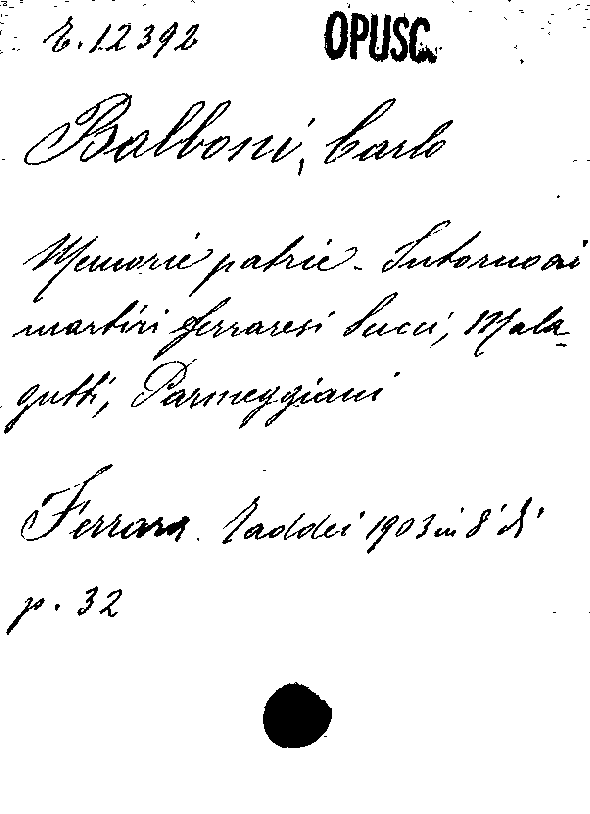 E.12392 OPUSC.
Balboni, Carlo
Memorie patrie - Intorno ai
martiri ferraresi Succi, Mala-
gutti, Parmeggiani
Ferrara. Taddei 1903 in 8° di
p. 32